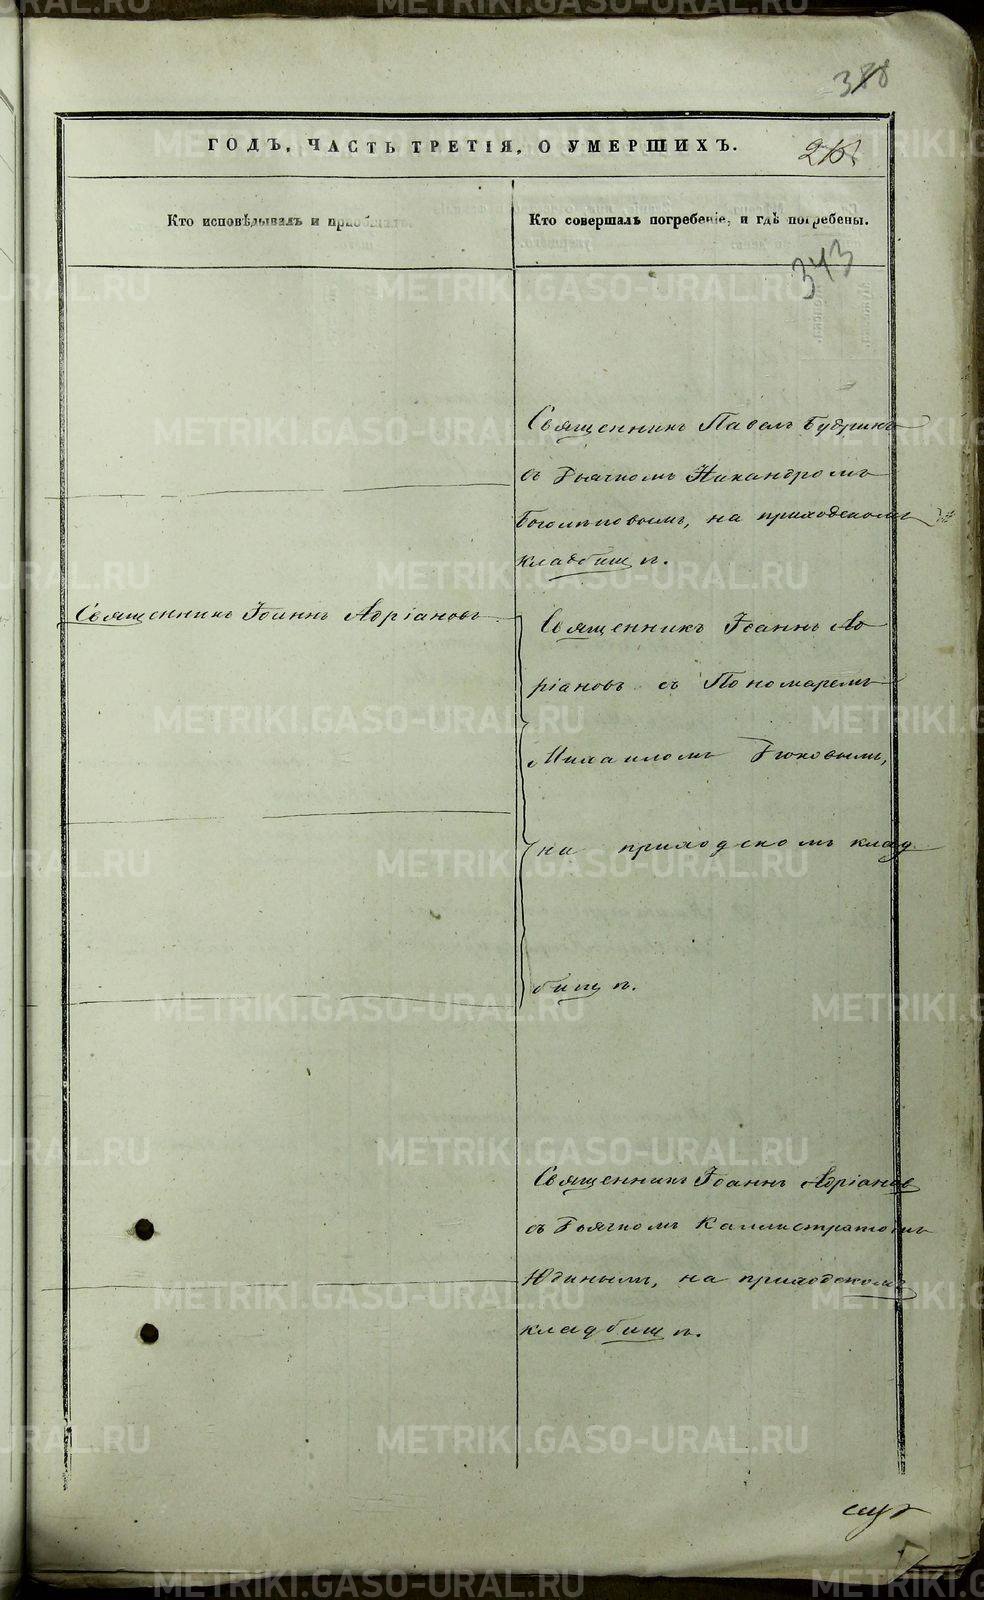 388
ГОДЪ, ЧАСТЬ ТРЕТІЯ, О УМЕРШИХЪ.
Кто исповѣдывалъ и приобщалъ.
Кто совершалъ погребеніе, и гдѣ погребены.
343
Священникъ Павелъ Будринъ
съ Дьячкомъ Никандромъ
Боголѣповымъ, на приходскомъ
кладбищѣ.
Священникъ Іоаннъ Адріановъ
Священникъ Іоаннъ Ад
ріановъ съ Пономаремъ
Михаиломъ
на приходскомъ клад
бищѣ.
Священникъ Іоаннъ Адріановъ
съ Дьячкомъ Каллистратомъ
Юдинымъ, на приходскомъ
кладбищѣ.
METRIKI.GASO-URAL.RU